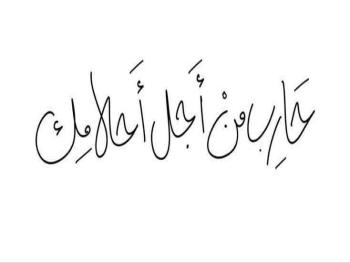 حَارِب مِنْ أَجل أَحلامِك